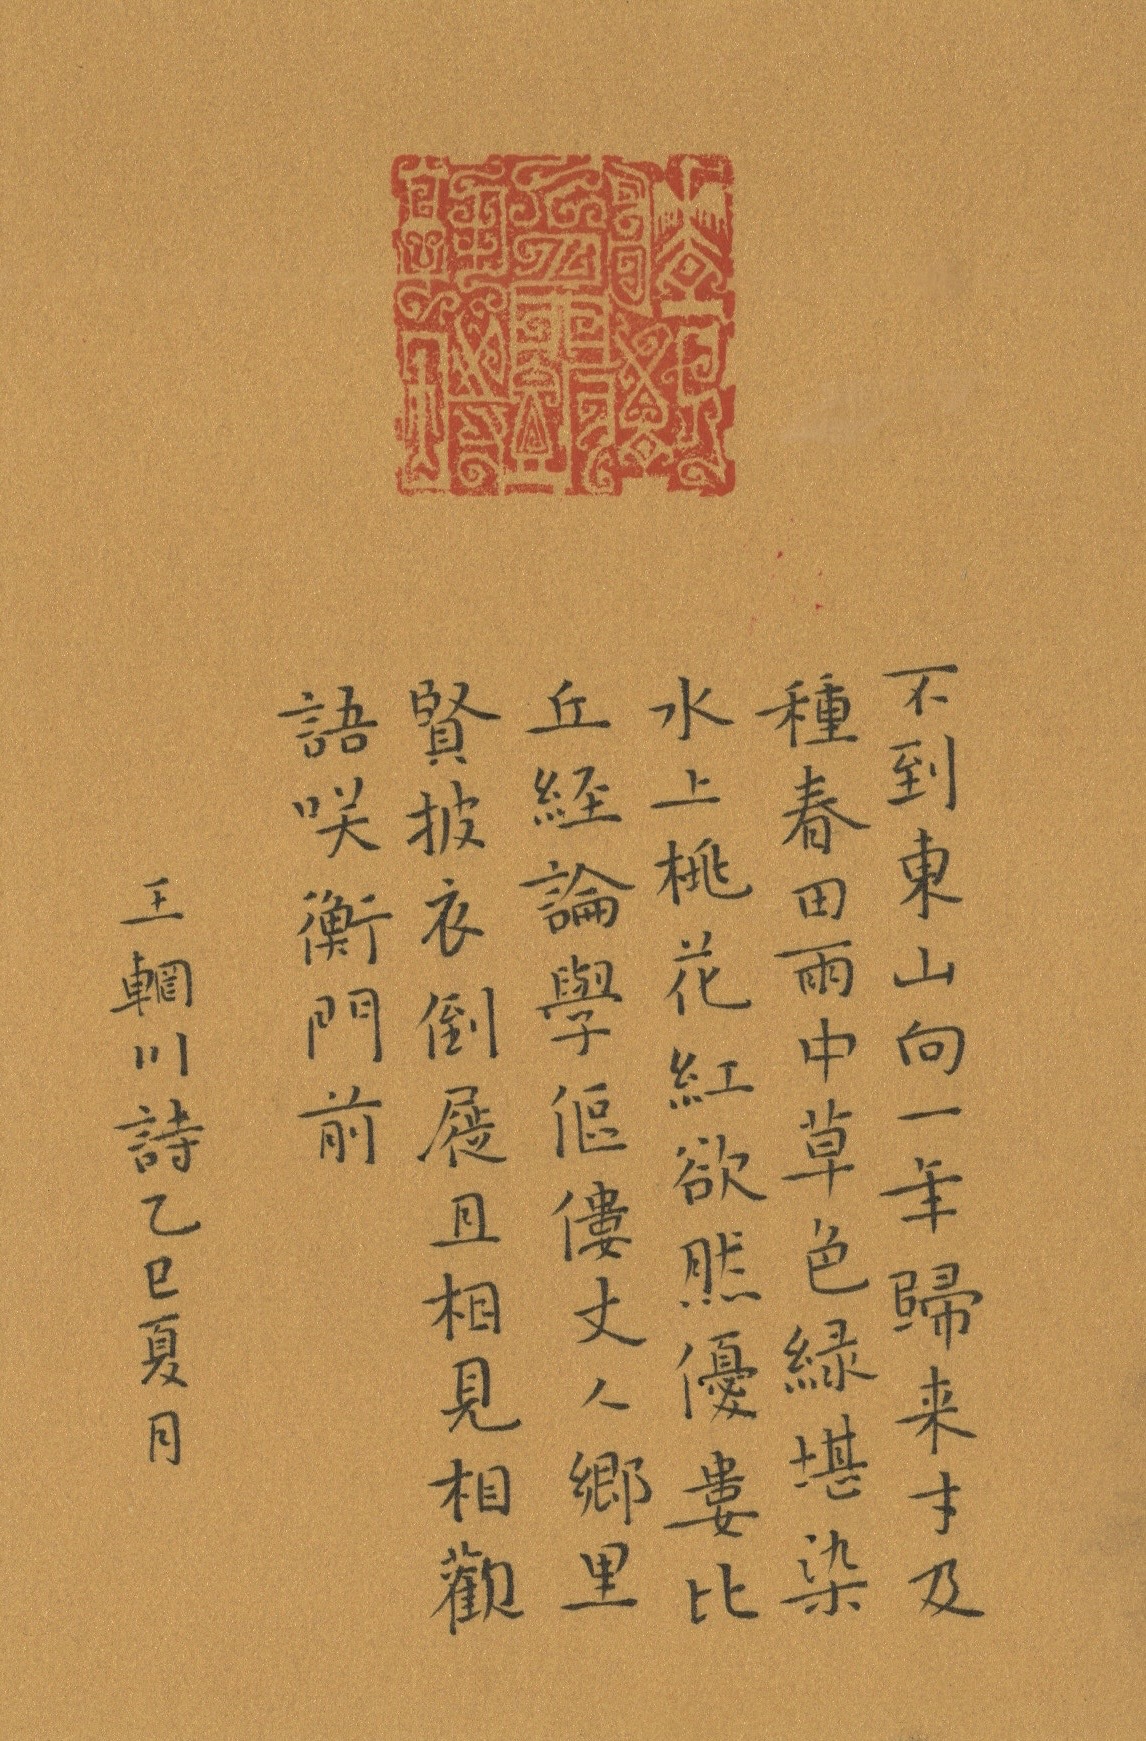 不到東山向一年歸来才及
種春田雨中草色緑堪染
水上桃花紅欲㷼優婁比
丘経論學傴僂丈人鄉里
賢披衣倒屣且相見相歡
語咲衡門前
王輞川詩乙巳夏月